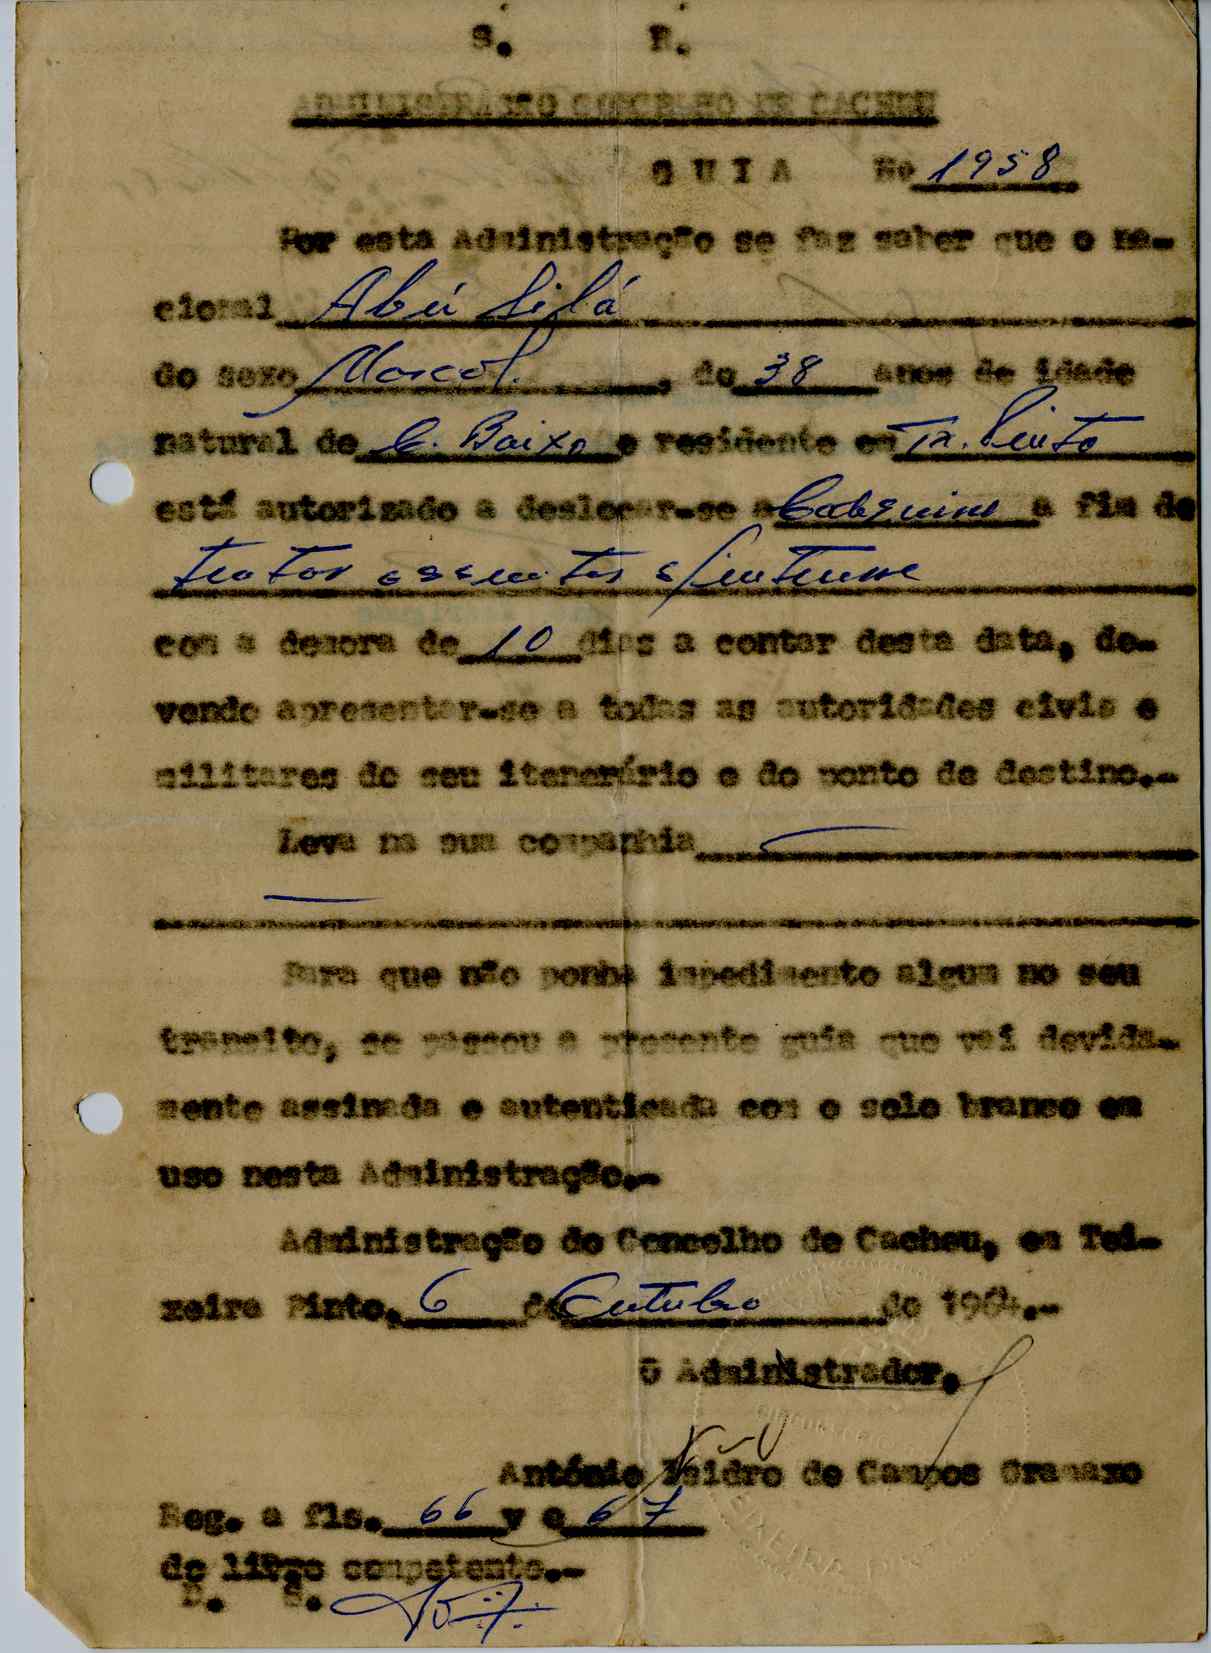 S. R.
ADMINISTRAÇÃO CONCELHO DE CACHEU
G U I A Nº 1958
Por esta Administração se faz saber que o na-
cional Abú Silá
do sexo Mascol. , de 38 anos de idade
natural de C. Baixo e residente em Tx. Pinto
está autorizado a deslocar-se a a fim de
tratar assuntos
com a demora de 10 dias a contar desta data, de-
vendo apresentar-se a todas as autoridades civis e
militares do seu itenerário e do ponto de destino.-
Leva na sua companhia
Para que não ponha impedimento algum no seu
transito, se passou a presente guia que vai devida-
mente assinada e autenticada com o selo branco em
uso nesta Administração.-
Administração do Concelho de Cacheu, em Tei-
xeira Pinto, 6 de Outubro de 1964.-
O Administrador,
António Isidro de Campos Gramaxo
Reg. a fls. 66 v e 67
do livro competente.-
TEIXEIRA PINTO